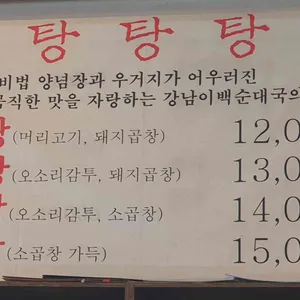 탕 탕 탕
비법 양념장과 우거지가 어우러진
직한 맛을 자랑하는 강남이백순대국의
(머리고기, 돼지곱창) 12,0
(오소리감투, 돼지곱창) 13,0
(오소리감투, 소곱창) 14,0
(소곱창 가득) 15,0